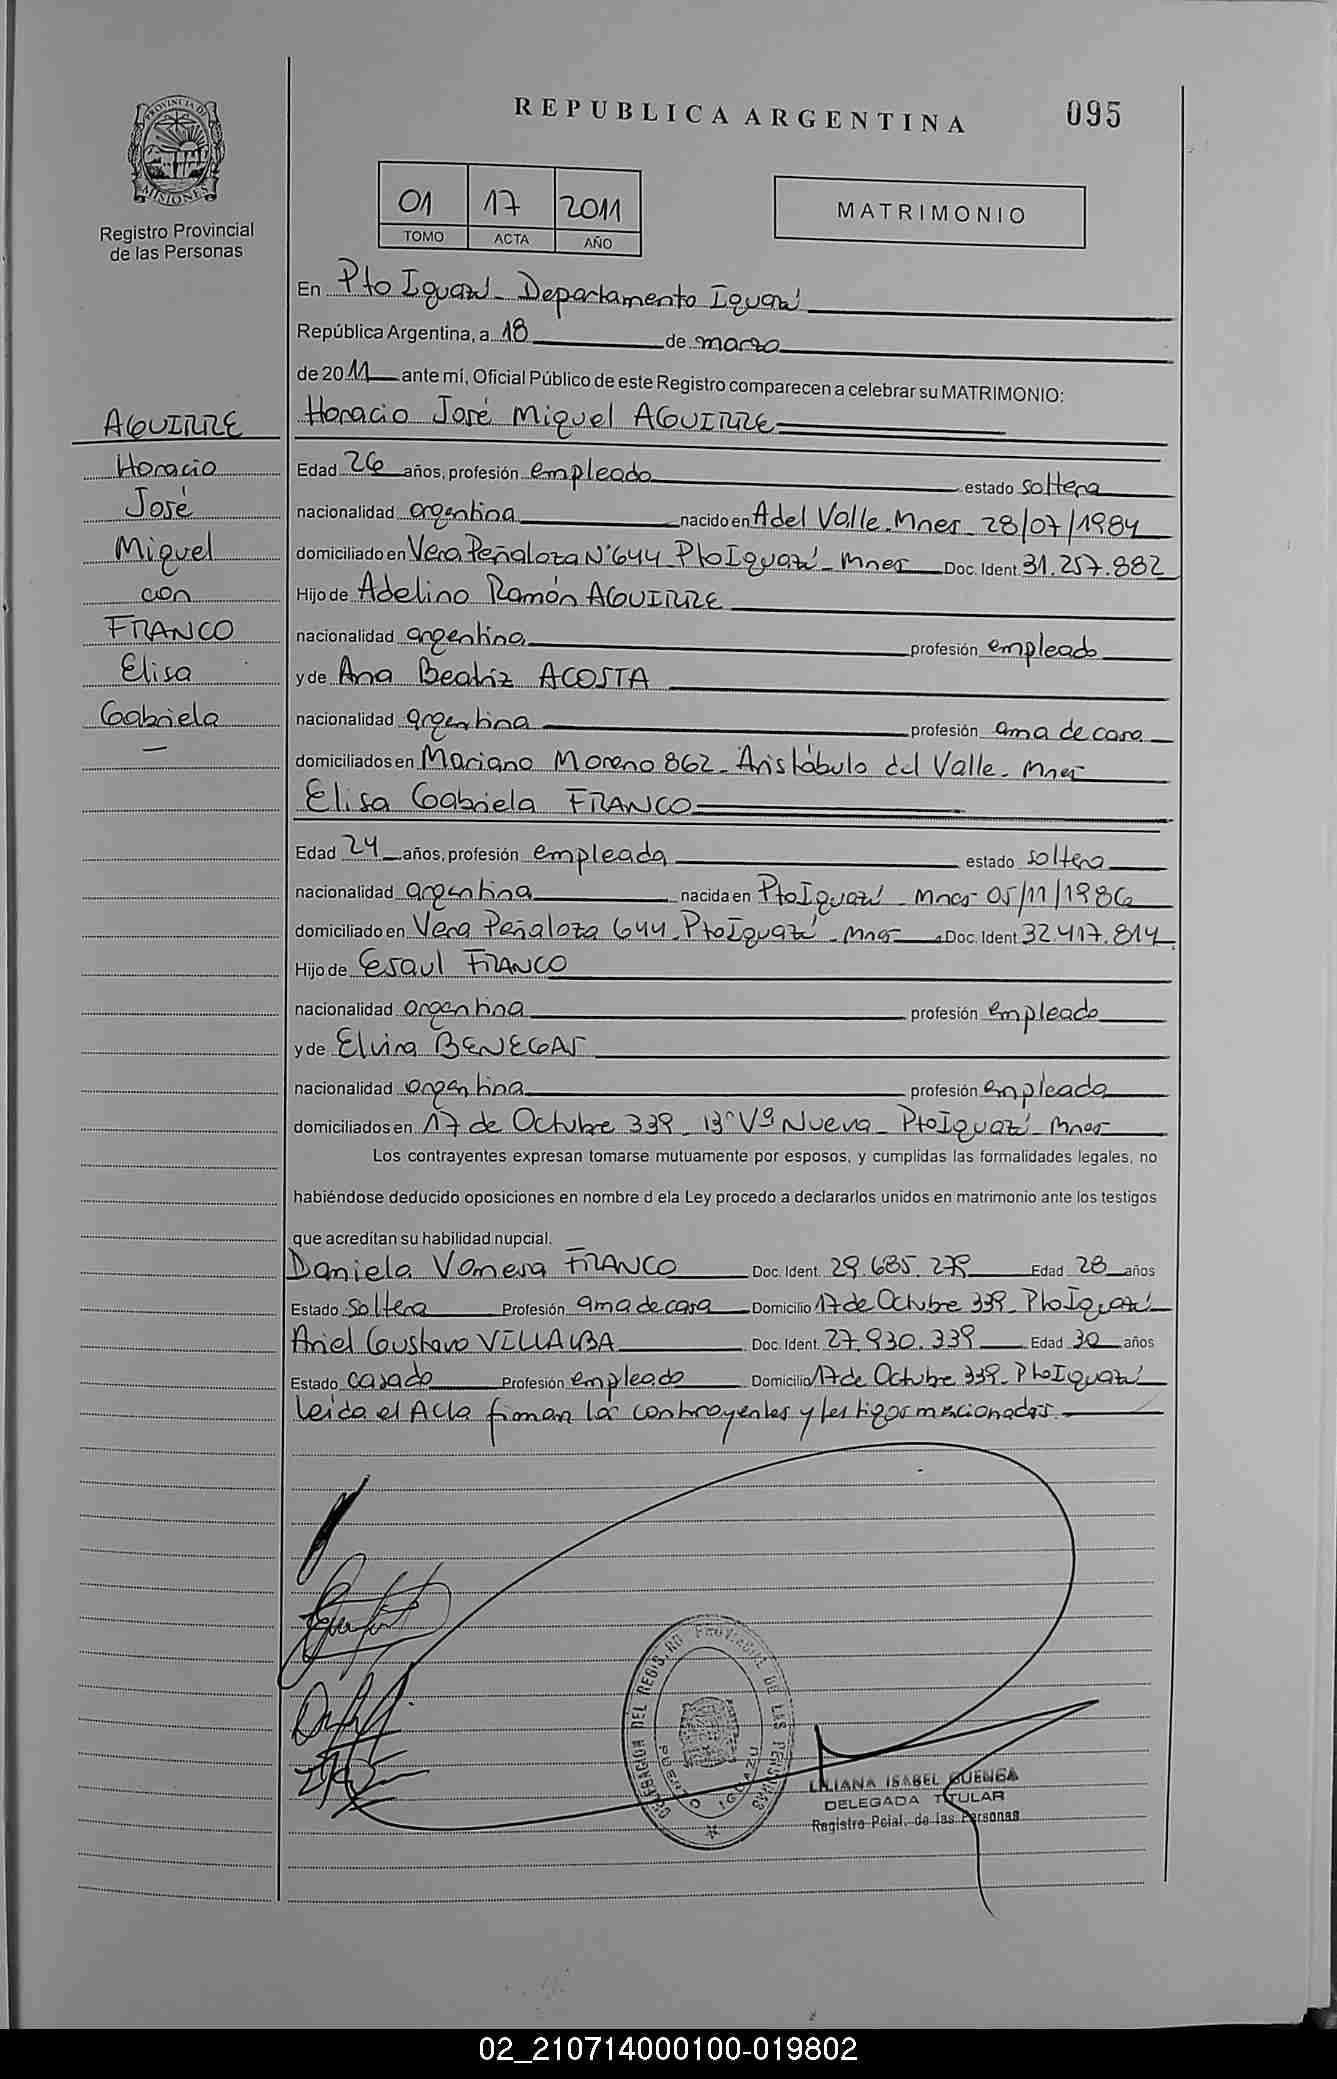 REPUBLICA ARGENTINA
095
PROVINCIA DE
MISIONES
Registro Provincial
de las Personas
01 17 2011
TOMO ACTA AÑO
MATRIMONIO
En Pto Iguazú - Departamento Iguazú
República Argentina, a 18 de marzo
de 2011 ante mí, Oficial Público de este Registro comparecen a celebrar su MATRIMONIO:
AGUIRRE
Horacio
José
Miguel
con
FRANCO
Elisa
Gabriela
Horacio José Miguel AGUIRRE
Edad 26 años, profesión empleado estado soltera
nacionalidad argentina nacido en A del Valle. Mnes - 28/07/1984
domiciliado en Vera Peñaloza N° 644 - Pto Iguazú - Mnes Doc. Ident. 31.257.882
Hijo de Adelino Ramón AGUIRRE
nacionalidad argentina profesión empleado
y de Ana Beatriz ACOSTA
nacionalidad argentina profesión ama de casa
domiciliados en Mariano Moreno 862 - Aristóbulo del Valle - Mnes
Elisa Gabriela FRANCO
Edad 24 años, profesión empleada estado soltera
nacionalidad argentina nacida en Pto Iguazú - Mnes - 05/11/1986
domiciliado en Vera Peñaloza 644 - Pto Iguazú - Mnes Doc. Ident. 32.417.814
Hijo de Esaul FRANCO
nacionalidad argentina profesión empleado
y de Elvira BENEGAS
nacionalidad argentina profesión empleada
domiciliados en 17 de Octubre 339 - B° Vª Nueva - Pto Iguazú - Mnes
Los contrayentes expresan tomarse mutuamente por esposos, y cumplidas las formalidades legales, no
habiéndose deducido oposiciones en nombre d ela Ley procedo a declararlos unidos en matrimonio ante los testigos
que acreditan su habilidad nupcial.
Daniela Vanesa FRANCO Doc. Ident. 29.685.279 Edad 28 años
Estado soltera Profesión ama de casa Domicilio 17 de Octubre 339 - Pto Iguazú
Ariel Gustavo VILLALBA Doc. Ident. 27.930.339 Edad 30 años
Estado casado Profesión empleado Domicilio 17 de Octubre 339 - Pto Iguazú
Leída el Acta firman los contrayentes y testigos mencionados.
DELEGACION DEL REGISTRO PROVINCIAL DE LAS PERSONAS
PUERTO IGUAZU
LILIANA ISABEL CUENCA
DELEGADA TITULAR
Registro Pcial. de las Personas
02_210714000100-019802